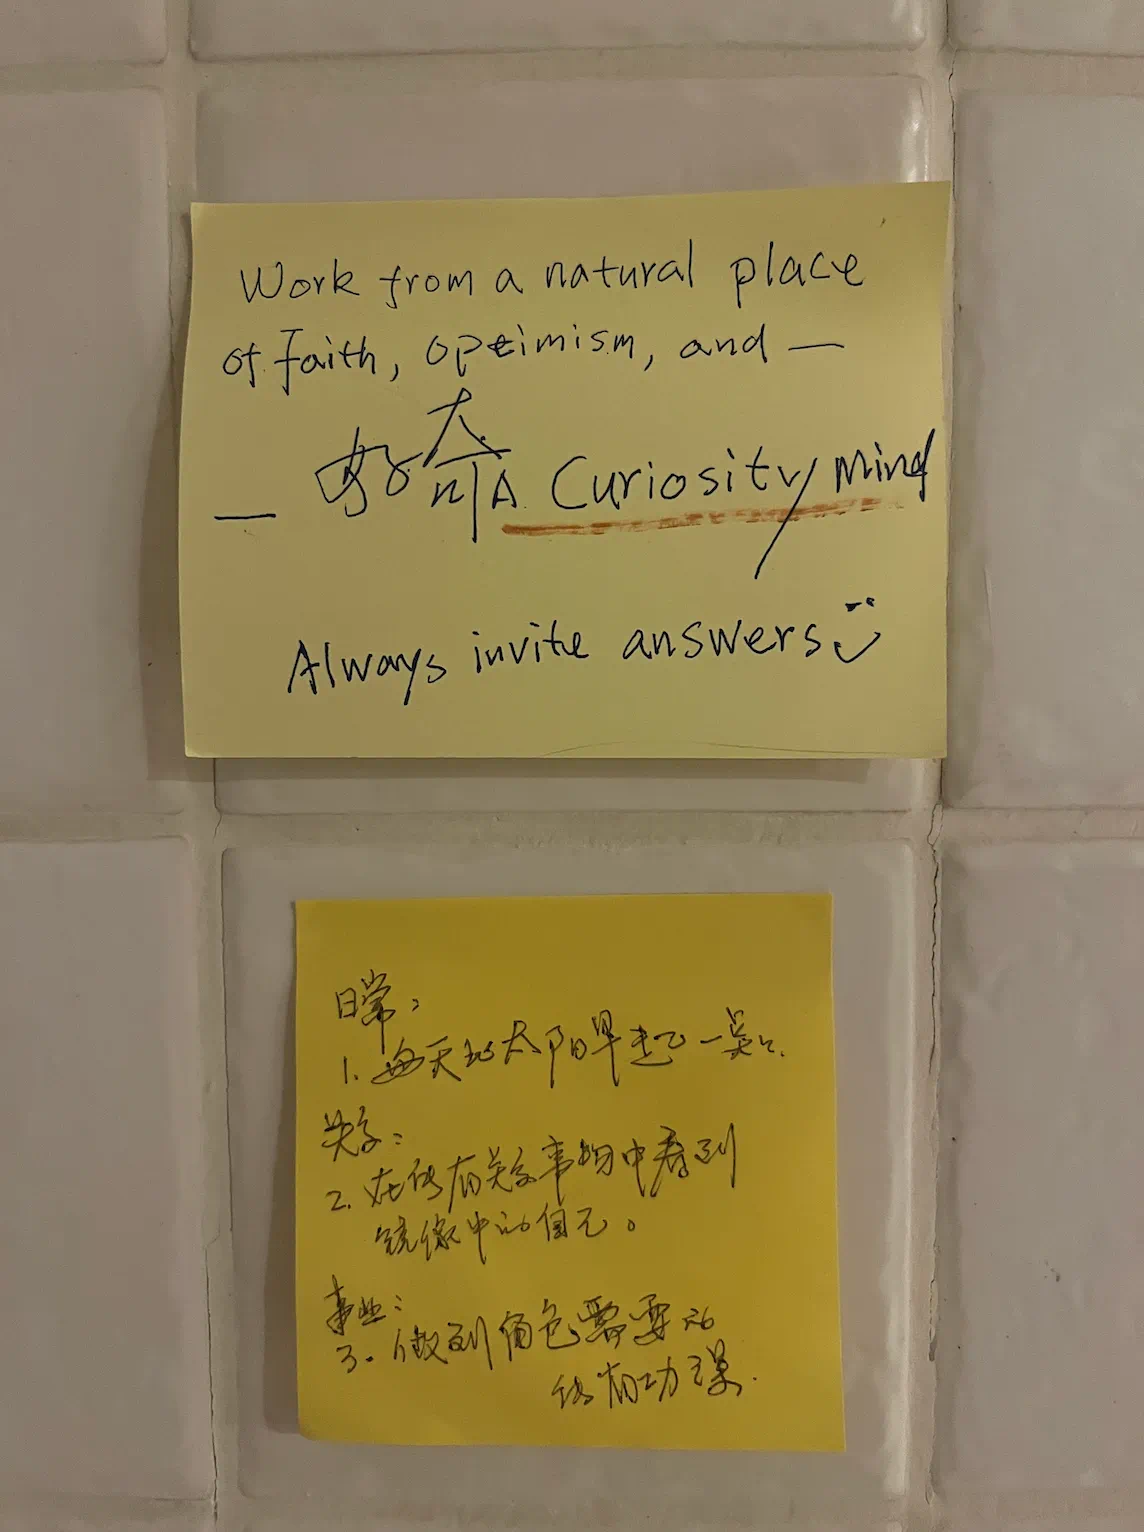 Work from a natural place
of faith, optimism, and —
— 好奇 A Curiosity Mind
Always invite answers
日常:
1. 每天比太阳早起一点.
关系:
2. 在所有关系事物中看到
镜像中的自己。
事业:
3. 做到角色需要的
所有功课.